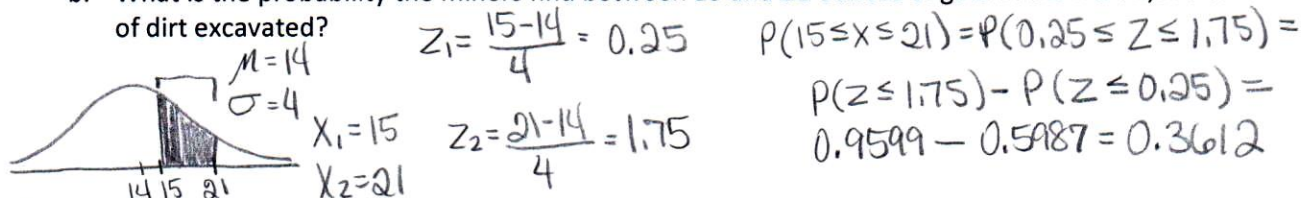 of dirt excavated?
M=14
σ=4
X₁=15
X₂=21
14 15 21
Z₁= 15-14/4 = 0.25
Z₂= 21-14/4 = 1.75
P(15≤X≤21)=P(0.25≤Z≤1.75)=
P(Z≤1.75)-P(Z≤0.25)=
0.9599-0.5987=0.3612